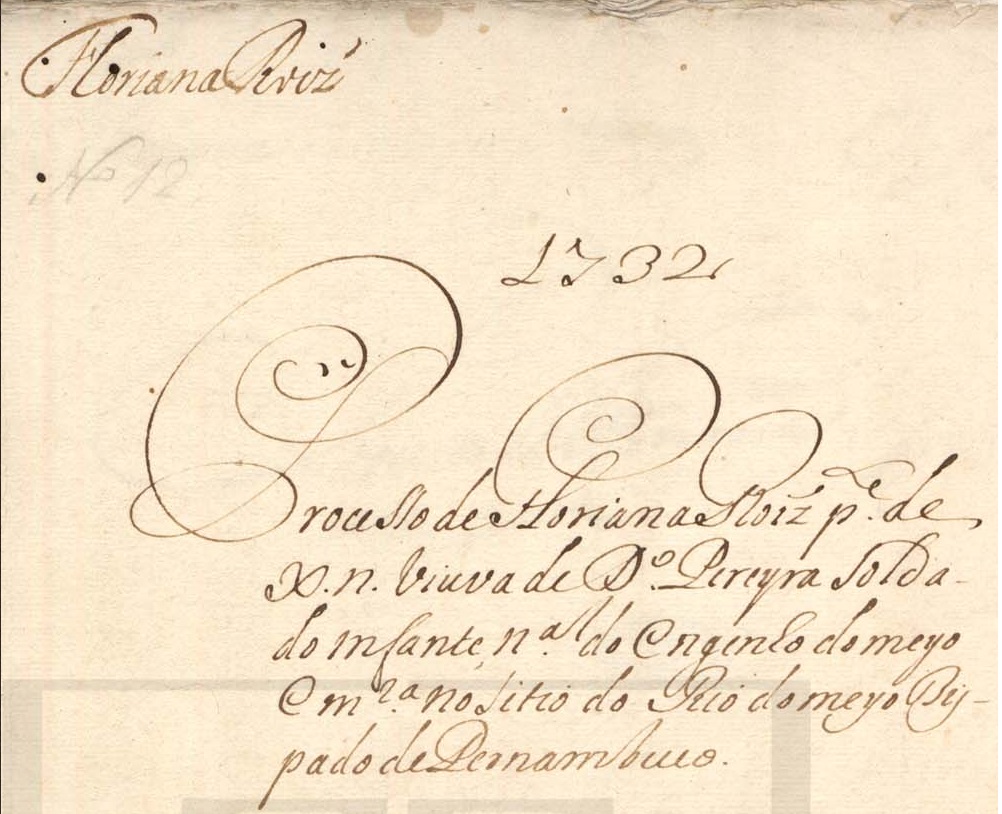 Floriana Roiz
No 12
1732
Processo de Floriana Roiz p.e de
X. n. Viuva de D.o Pereyra solda-
do infante, n.al do Engenho do meyo
e m.ra no sitio do Rio do meyo Bis-
pado de Pernambuco.